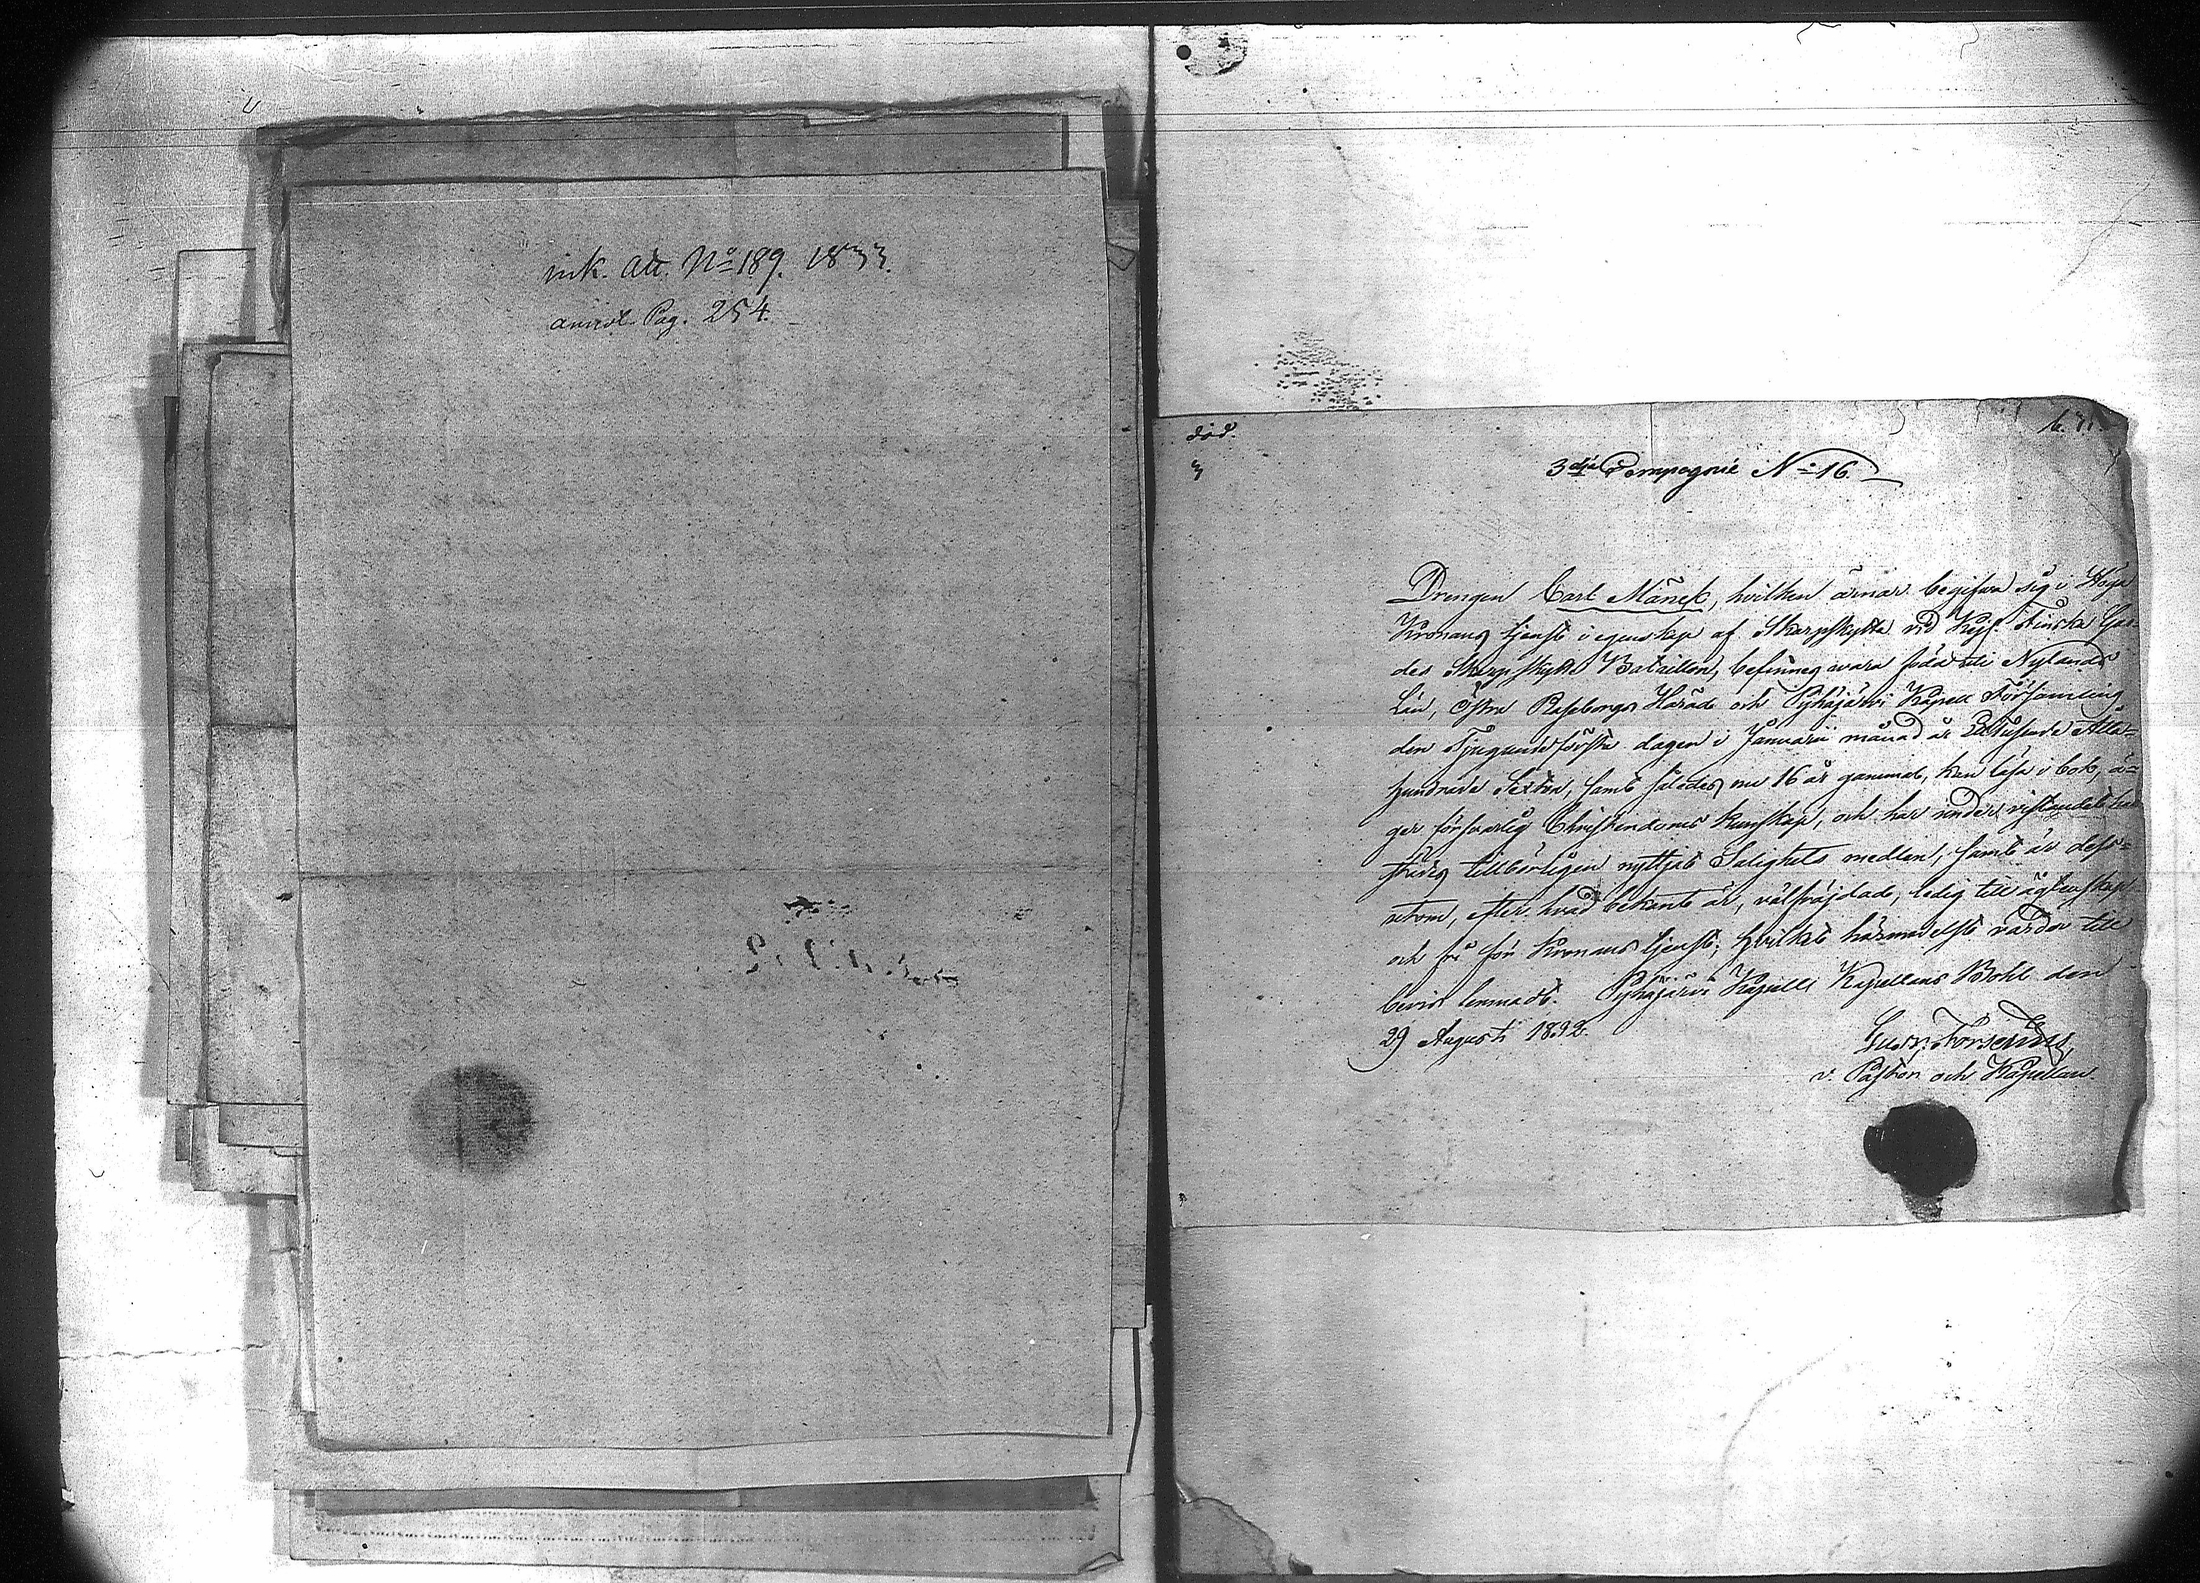 ink. Att. No 189. 1833.
Pag. 254.
död.
3dje Compagnie No 16.
Drengen Carl Mäneh, hvilken ärnar begifva sig i Höga
Kronans tjenst i egenskap af Skarpskytte vid Kejs. Finska Gar-
des Skarpskytte Bataillon, befinnes vara född uti Nylands
Län, Östra Raseborgs Härads och Pyhäjärvi Kapell Församling
den Tjugundeförsta dagen i Januari månad år Ettusende Otta-
hundrade Sexton, samt således nu 16 år gammal, kan läsa i bok, ä-
ger försvarlig Christendoms kunskap, och har under vistandet här-
städes tillbörligen nyttjat Salighets medlen, samt är dess-
utom, efter hvad bekant är, välfräjdad, ledig till ägtenskap
och fri för Kronans tjenst; hvilket härmedelst varder till
bevis lemnadt. Pyhäjärvi Kapell Kapellans Bohl den
29 Augusti 1832.
Gust. Forsenius,
v. Pastor och Kapellan.